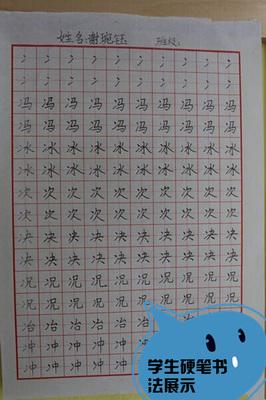 姓名:谢琬钰 班级:
冫冫冫冫冫冫冫冫冫冫
冫冫冫冫冫冫冫冫冫冫
冯冯冯冯冯冯冯冯冯冯
冯冯冯冯冯冯冯冯冯冯
冰冰冰冰冰冰冰冰冰冰
冰冰冰冰冰冰冰冰冰冰
次次次次次次次次次次
次次次次次次次次次次
决决决决决决决决决决
决决决决决决决决决决
况况况况况况况况况况
况况况况况况况况况况
冶冶冶冶冶冶冶冶
冲冲冲冲冲冲
冲冲冲冲冲
学生硬笔书
法展示